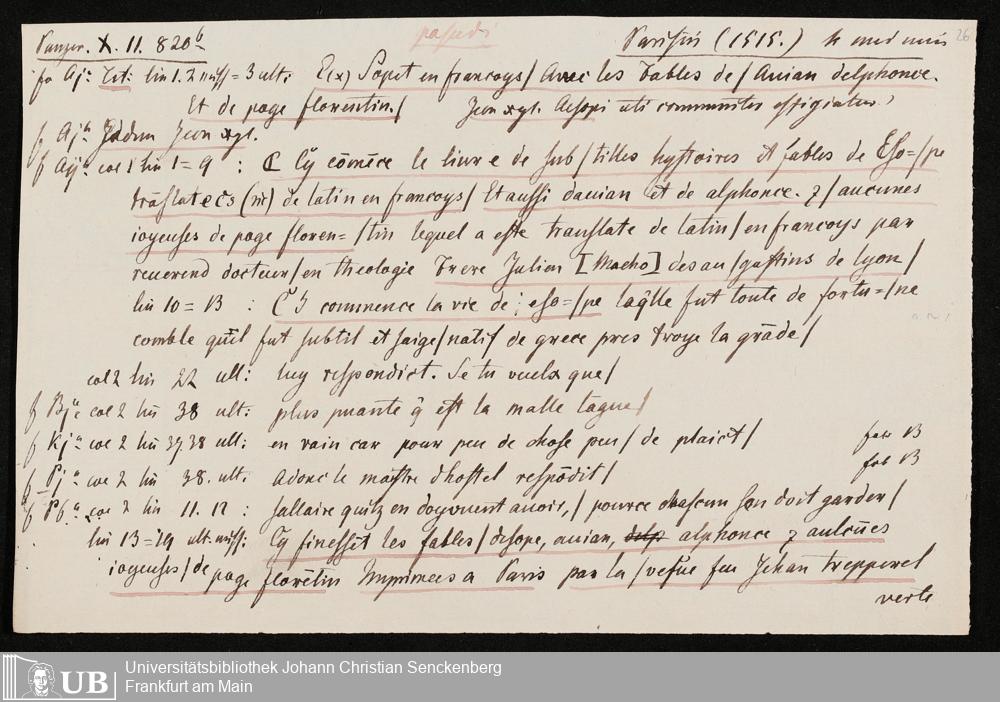 Panzer. X. 11. 820b passedi Parisijs (1515.) 4 26
fa Aj: Tit: lin 1. 2 miss = 3 ult: E(x) Sopet en francoys / Avec les Fables de / Auian delphonce.
Et de poge florentin. / Icon xyl. Aesopi uti communiter effigiatur.)
f Ajb Eadem Icon xyl.
f Aija col 1 lin 1 = 9 : C Cy cōmēce le liure de sub / tilles hystoires et fables de Eso= / pe
trāslatees (sic) de latin en francoys / Et aussi dauian et de alphonce. z / aucunes
ioyeuses de poge floren= / tin lequel a este translate de latin / en francoys par
reuerend docteur / en theologie Frere Julien [Macho] des au / gustins de lyon /
lin 10 = 13 : Cy commence la vie de eso= / pe laq̄lle fut toute de fortu= / ne
comble quil fut subtil et saige / natif de grece pres troye la grāde /
col 2 lin 22 ult: luy respondict. Se tu veulx que /
f Bja col 2 lin 38 ult: plus puante q̄ est la malle tague /
f Kja col 2 lin 37. 38 ult: en vain car pour peu de chose peu / de plaict / fab 13
f Pja col 2 lin 38. ult: adonc le maistre dhostel respōdit / fab 13
f P6a col 2 lin 11. 12 : sallaire quilz en doyuent auoir, / pource chascun sen doit garder /
lin 13 = 19 ult. miss: Cy finessēt les fables / desope, auian, alphonce z aulcūes
ioyeuses / de poge florētin Imprimees a Paris par la / vefue feu Jehan trepperel
verte
UB Universitätsbibliothek Johann Christian Senckenberg
Frankfurt am Main